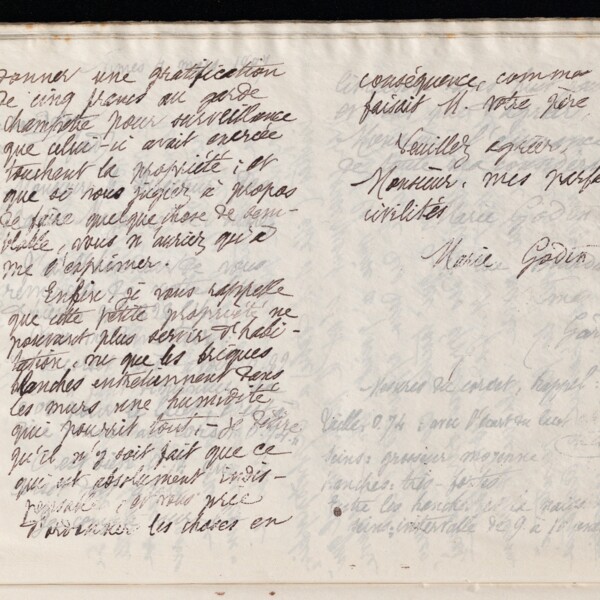 donner une gratification
de cinq francs au garde
champêtre pour surveillance
que celui-ci avait exercée
touchant la propriété ; et
que si vous jugiez à propos
de faire quelque chose de sem-
blable, vous n'auriez qu'à
me l'exprimer.
Enfin, je vous rappelle
que cette petite propriété ne
pouvant plus servir d'habi-
tation, vu que les briques
blanches entretiennent dans
les murs une humidité
qui pourrit tout, je désire
qu'il n'y soit fait que ce
qui est absolument indis-
pensable, et vous prie
d'ordonner les choses en
conséquence, comme
faisait M. votre père
Veuillez agréer,
Monsieur, mes parfa
civilités
Marie Godin
Mesures du corset, rappel :
Taille 0.74
Seins : grosseur moyenne
hanches : très fortes
Entre les hanches et la naiss
seins : intervalle de 9 à 10